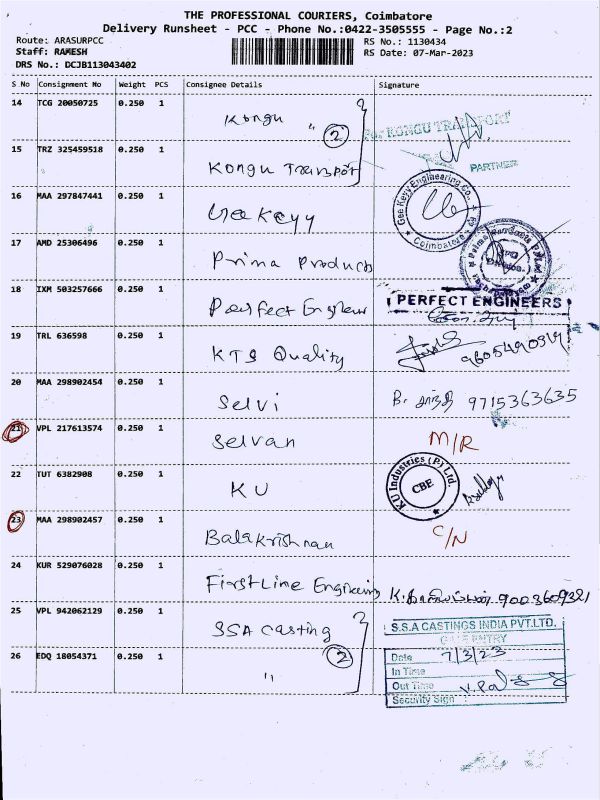 THE PROFESSIONAL COURIERS, Coimbatore
Delivery Runsheet - PCC - Phone No.:0422-3505555 - Page No.:2
Route: ARASURPCC
RS No.: 1130434
Staff: RAMESH
RS Date: 07-Mar-2023
DRS No.: DCJB113043402
S No Consignment No Weight PCS Consignee Details Signature
14 TCG 20050725 0.250 1 Kongu " 2
For KONGU TRANSPORT
PARTNER
15 TRZ 325459518 0.250 1 Kongu Transport
16 MAA 297847441 0.250 1 Gee Keyy
Gee Keyy Engineering Co., Coimbatore
17 AMD 25306496 0.250 1 Prima Products
18 IXM 503257666 0.250 1 Perfect Engineer
PERFECT ENGINEERS
19 TRL 636598 0.250 1 KTS Quality
20 MAA 298902454 0.250 1 Selvi B. 9715363635
21 VPL 217613574 0.250 1 Selvan M/R
22 TUT 6382908 0.250 1 KU
KU Industries (P) Ltd. CBE
23 MAA 298902457 0.250 1 Balakrishnan C/N
24 KUR 529076028 0.250 1 First Line Engineering 9003609321
25 VPL 942062129 0.250 1 SSA Casting
S.S.A CASTINGS INDIA PVT.LTD.
GATE ENTRY
26 EDQ 18054371 0.250 1 " 2
Date 7/3/23
In Time
Out Time
Security Sign